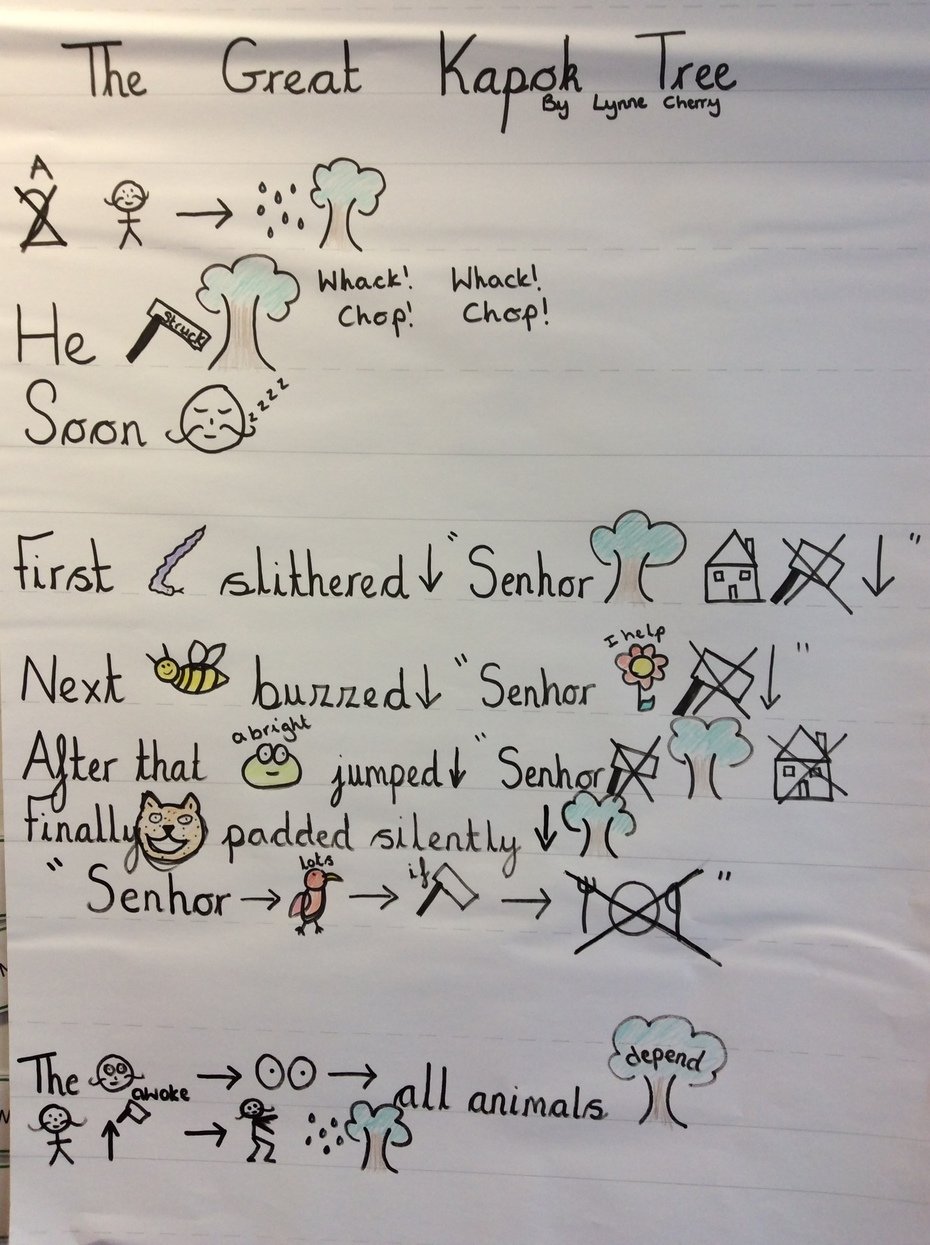 The Great Kapok Tree
By Lynne Cherry
A
He struck Whack! Whack!
Chop! Chop!
Soon zzzz
First slithered "Senhor "
I help
Next buzzed "Senhor "
a bright
After that jumped "Senhor
Finally padded silently
lots if
"Senhor "
The awoke all animals depend